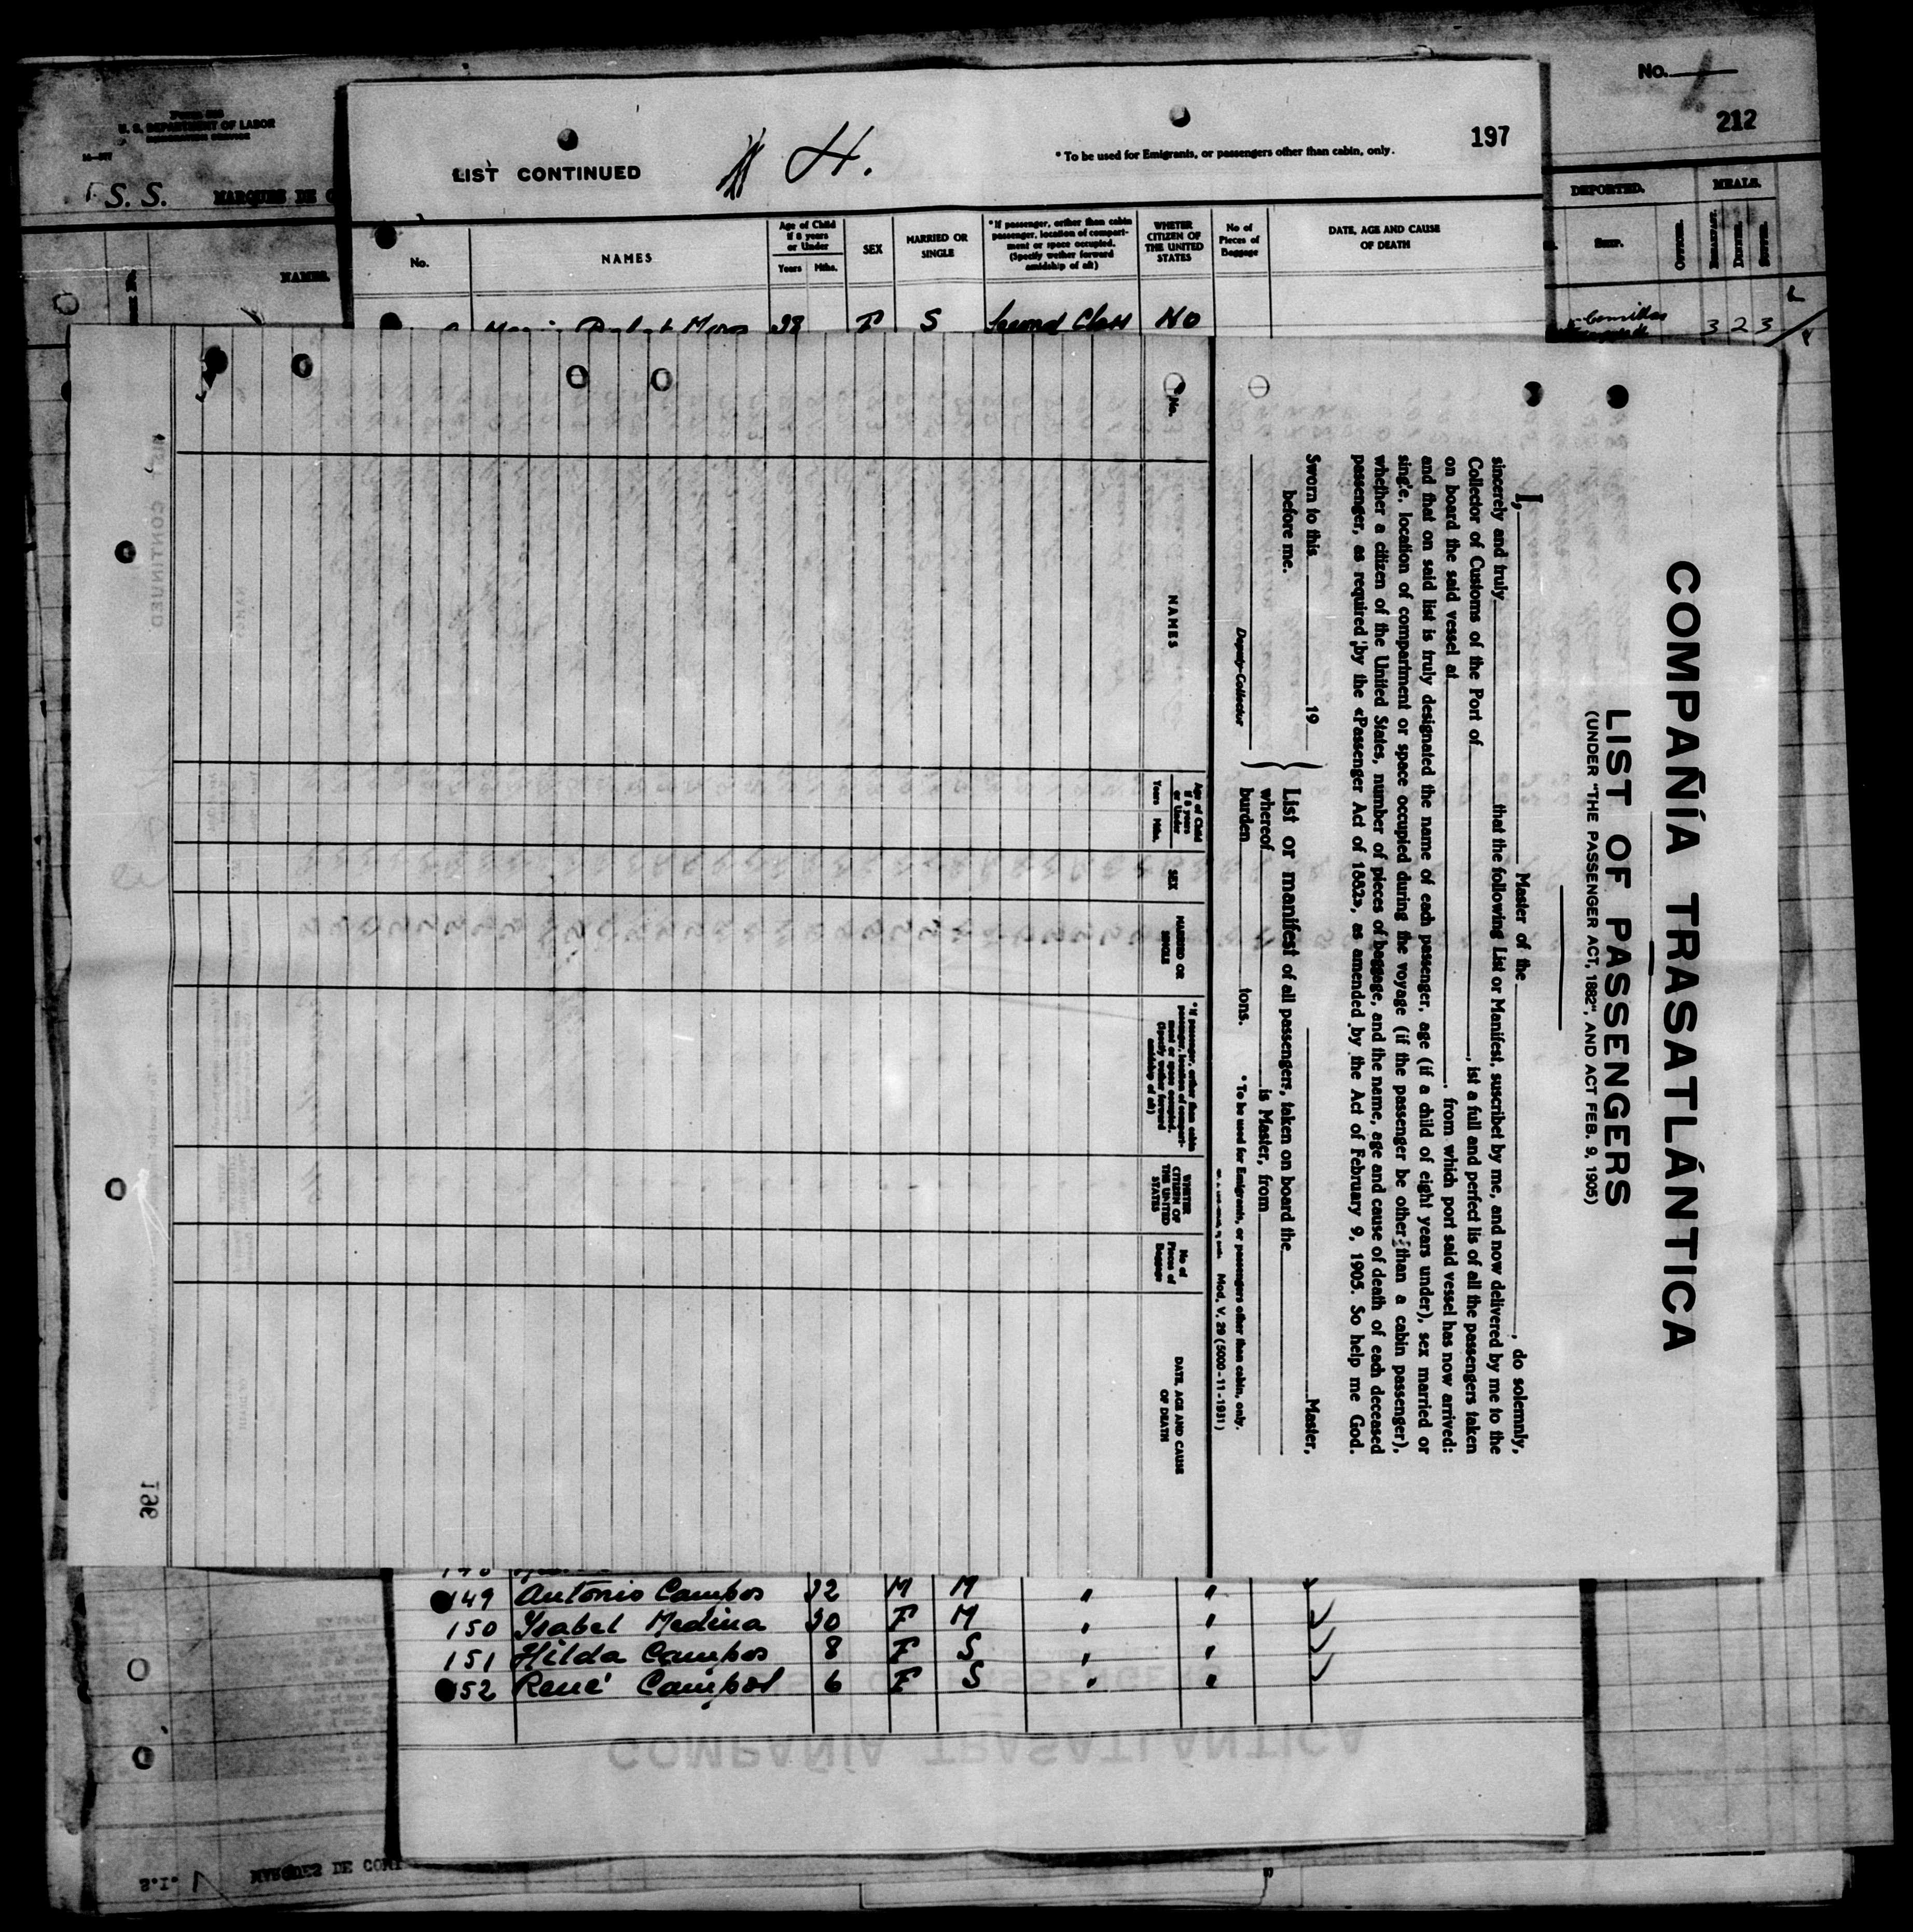 No. 1
212
Form
U. S. DEPARTMENT OF LABOR
S. S. MARQUES DE C
NAMES.
DEPORTED.
MEALS.
SHIP.
Comillas
3 2 3
LIST CONTINUED
H.
* To be used for Emigrants, or passengers other than cabin, only.
197
No.
NAMES
Age of Child if 8 years or Under
Years Mths.
SEX
MARRIED OR SINGLE
*If passenger, orther than cabin passenger, location of compartiment or space occupied. (Specify wether forward amidship of aft)
WHETER CITIZEN OF THE UNITED STATES
No of Pieces of Baggage
DATE, AGE AND CAUSE OF DEATH
F S Second Class No
COMPAÑÍA TRASATLÁNTICA
LIST OF PASSENGERS
(UNDER "THE PASSENGER ACT, 1882", AND ACT FEB. 9, 1905)
I, Master of the , do solemnly,
sincerely and truly that the following List or Manifest, suscribet by me, and now delivered by me to the
Collector of Customs of the Port of , ist a full and perfect lis of all the passengers taken
on board the said vessel at from which port said vessel has now arrived:
and that on said list is truly designated the name of each passenger, age (if a child of eight years under), sex married or
single, location of compartment or space occupied during the voyage (if the passenger be other than a cabin passenger),
whether a citizen of the United States, number of pieces of baggage, and the name, age and cause of death of each deceased
passenger, as required by the «Passenger Act of 1882», as amended by the Act of February 9, 1905. So help me God.
Sworn to this 19 Master,
before me.
Deputy-Collector
List or manifest of all passengers, taken on board the
whereof is Master, from
burden tons.
* To be used for Emigrants, or passengers other than cabin, only.
Mod. V. 29 (5000-11-1931)
No.
NAMES
Age of Child if 8 years or Under
Years Mths.
SEX
MARRIED OR SINGLE
*If passenger, orther than cabin passenger, location of compartment or space occupied. (Specify wether forward amidship of aft)
WHETER CITIZEN OF THE UNITED STATES
No of Pieces of Baggage
DATE, AGE AND CAUSE OF DEATH
LIST CONTINUED
196
149 Antonio Campos 32 M M " "
150 Ysabel Medina 30 F M " "
151 Hilda Campos 8 F S "
152 René Campos 6 F S " "
COMPAÑÍA TRASATLÁNTICA
MARQUES DE COMI